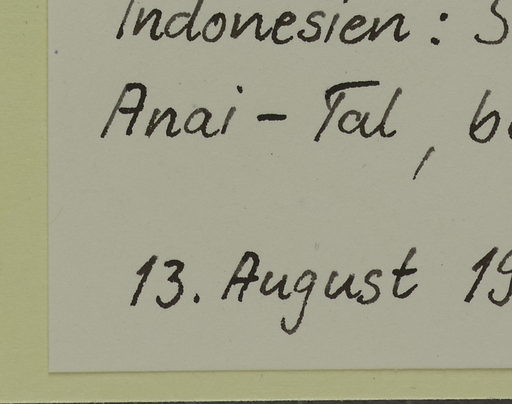 Indonesien: S
Anai-Tal, b
13. August 19